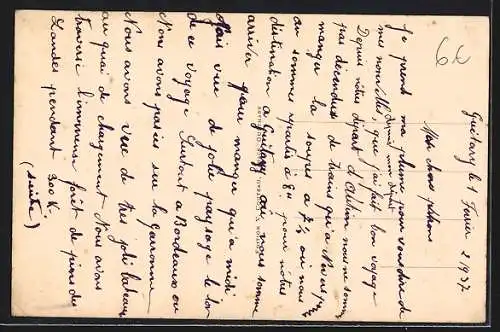 Guétary le 1 Février 1937
Mes chers petitons
Je prends ma plume pour vous dire de
mes nouvelles, que j'ai fait bon voyage
Depuis nôtre départ nous ne
pas descendues de trains qu'a
mangu la soupes a 7½ ou nous
au sommes repartis à 8h pour nôtre
distination a Guétary ou nous somme
arrivér pour mangu qu'a midi
Mais vue de jolie paysage le lon
de ce voyage surtout a Bordeaux ou
Nous avons passés sur la Garonne
Nous avons vue de très joli bateau
au quai de chargement Nous avons
traversé l'immense forêt de pins des
Landes pendant 300 K.
(suite)